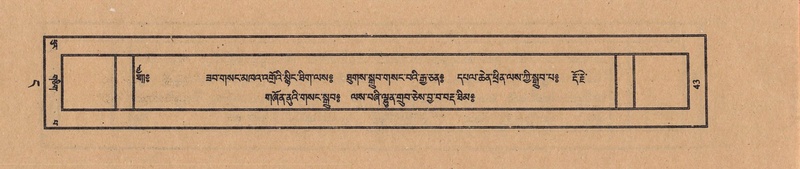 ཟབ་གསང་མཁའ་འགྲོའི་སྙིང་ཐིག་ལས༔ ཐུགས་སྒྲུབ་གསང་བའི་རྒྱ་ཅན༔ དཔལ་ཆེན་ཕྲིན་ལས་ཀྱི་སྒྲུབ་པ༔ རྡོ་རྗེ་
གཞོན་ནུའི་གསང་སྒྲུབ༔ ལས་བཞི་ལྷུན་གྲུབ་ཅེས་བྱ་བ་བརྡ་ཐིམ༔
43